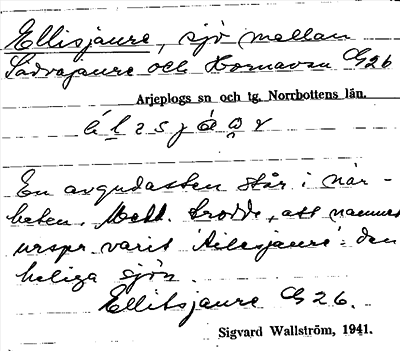 Ellisjaure, sjö mellan
Sädvajaure och Hornavan G26
Arjeplogs sn och tg. Norrbottens län.
En avgudasten står i när-
heten. Medd. trodde, att namnet
urspr. varit 'Ailesjaure': den
heliga sjön.
Ellitsjaure G 26.
Sigvard Wallström, 1941.